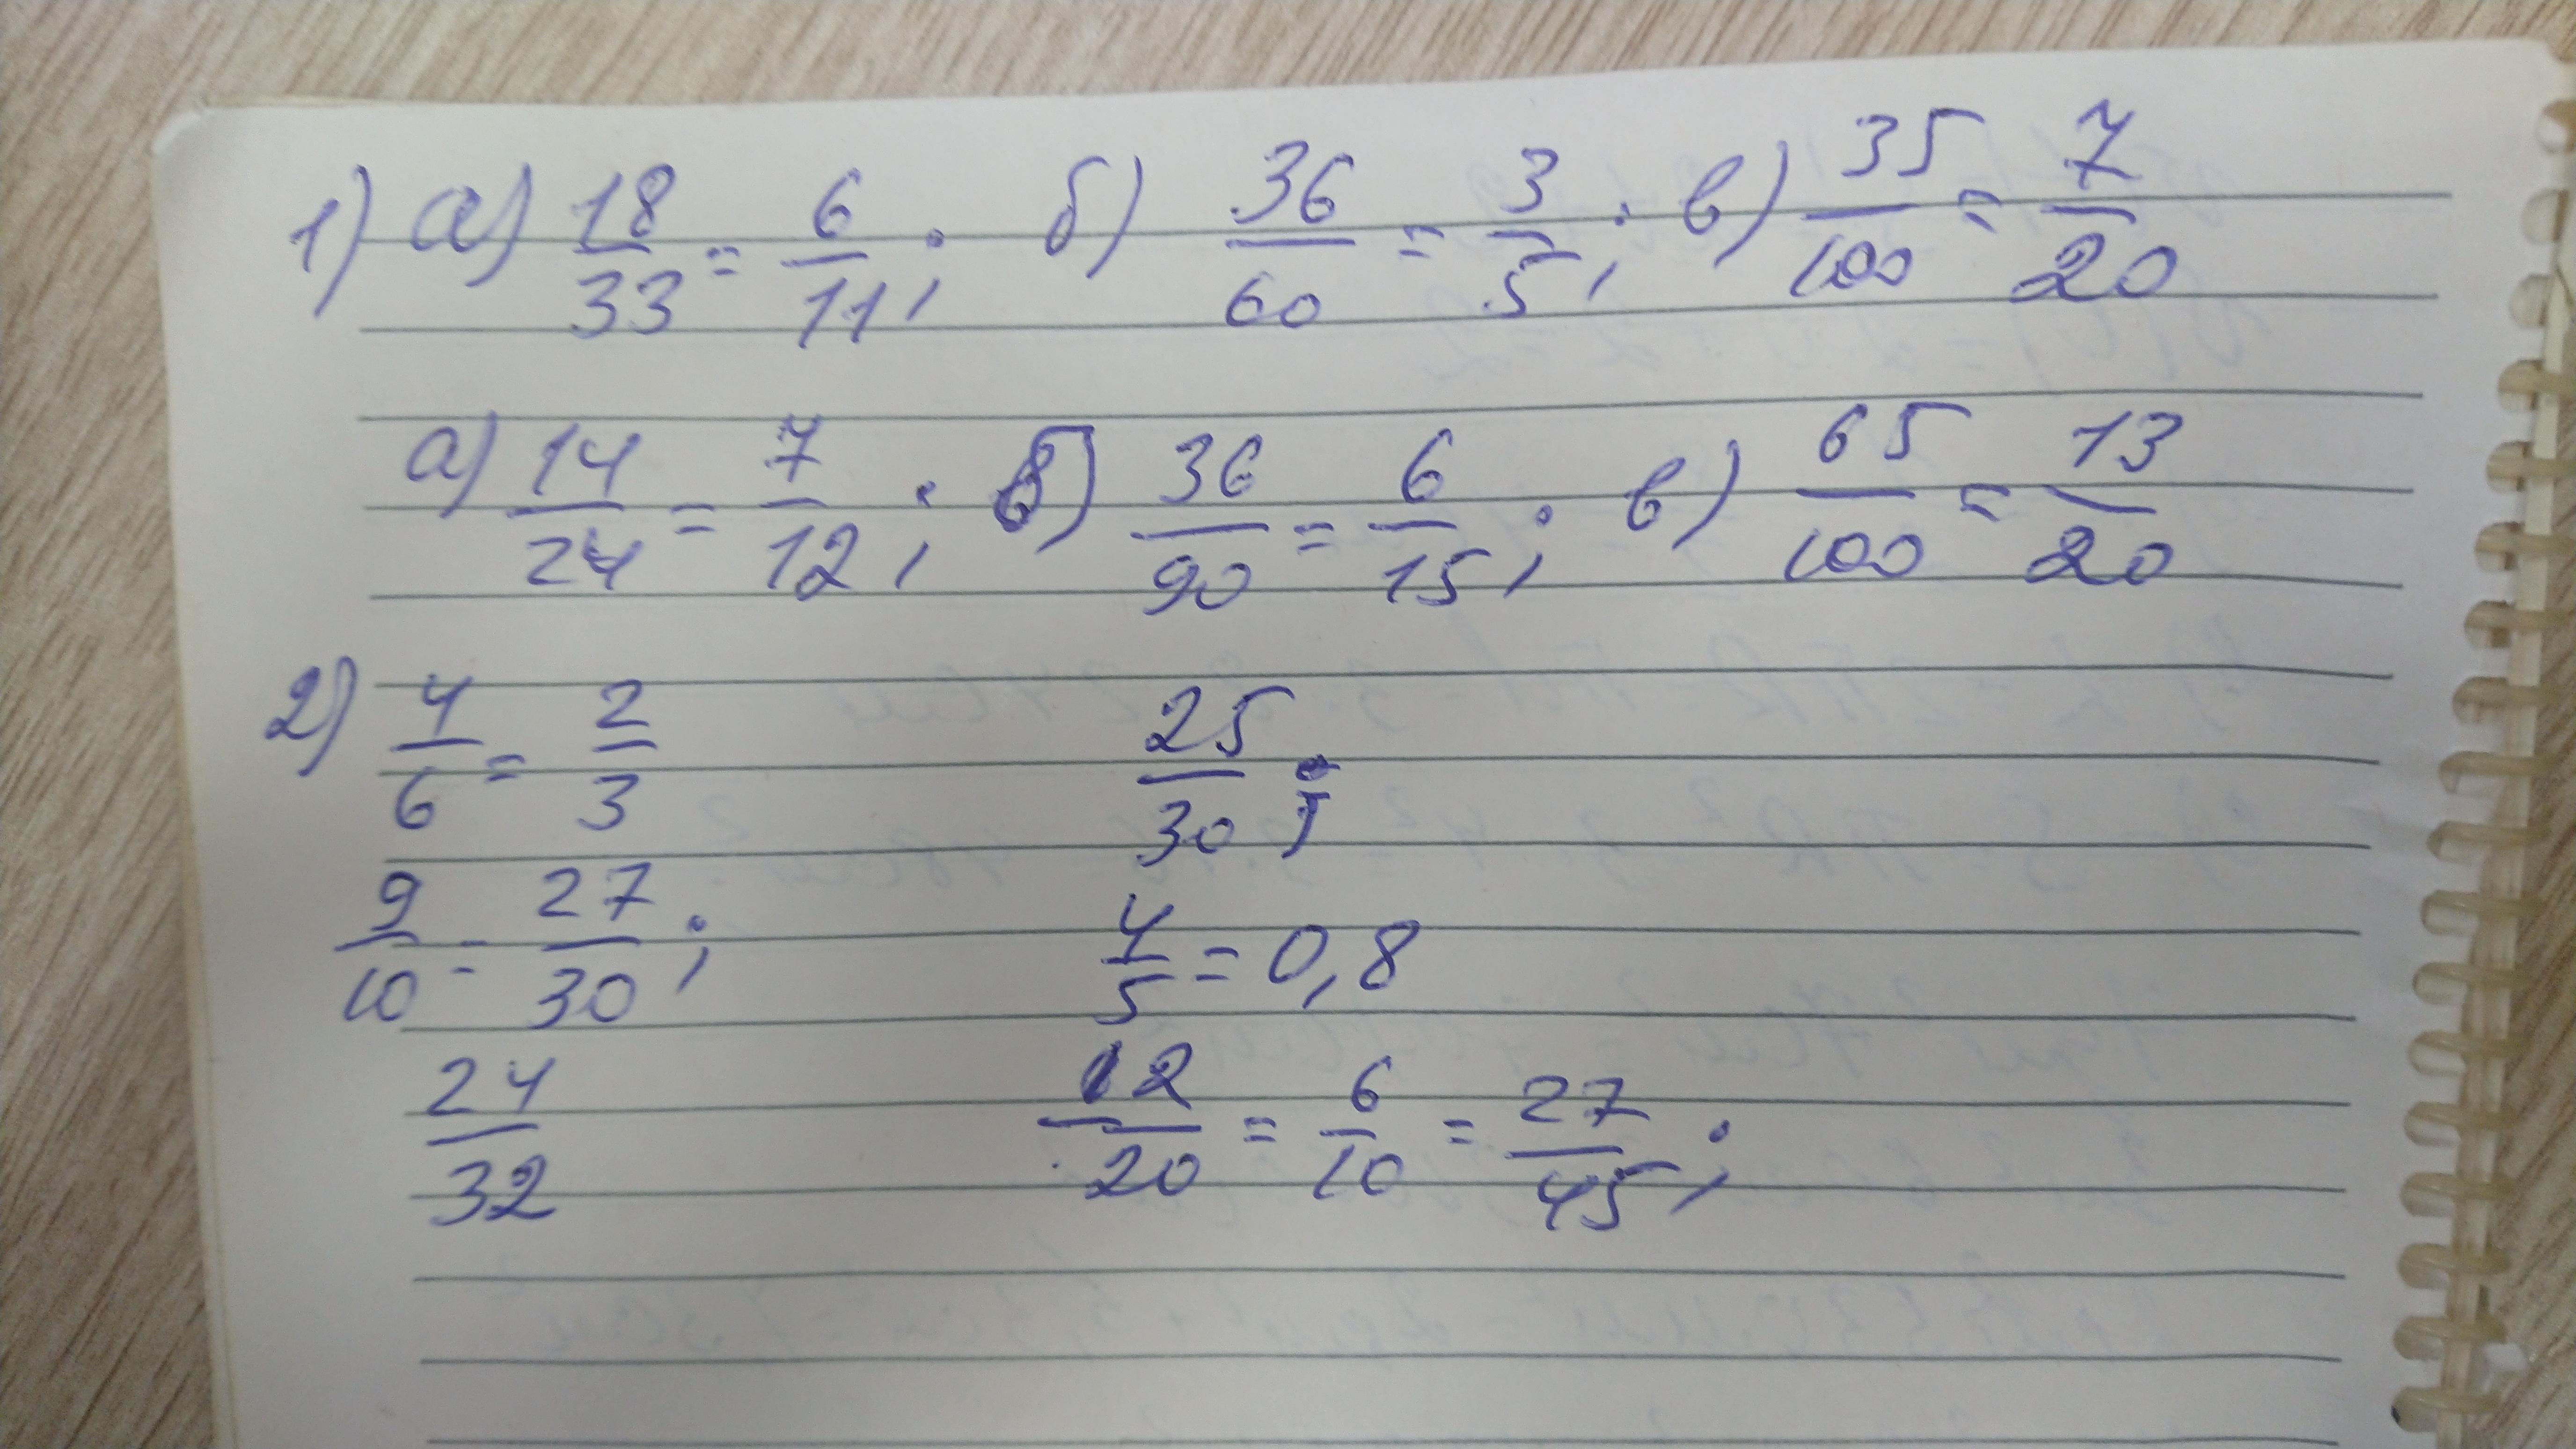 1) а) 18/33 = 6/11; б) 36/60 = 3/5; в) 35/100 = 7/20
а) 14/24 = 7/12; б) 36/90 = 6/15; в) 65/100 = 13/20
2) 4/6 = 2/3 25/30;
9/10 = 27/30; 4/5 = 0,8
24/32 12/20 = 6/10 = 27/45;